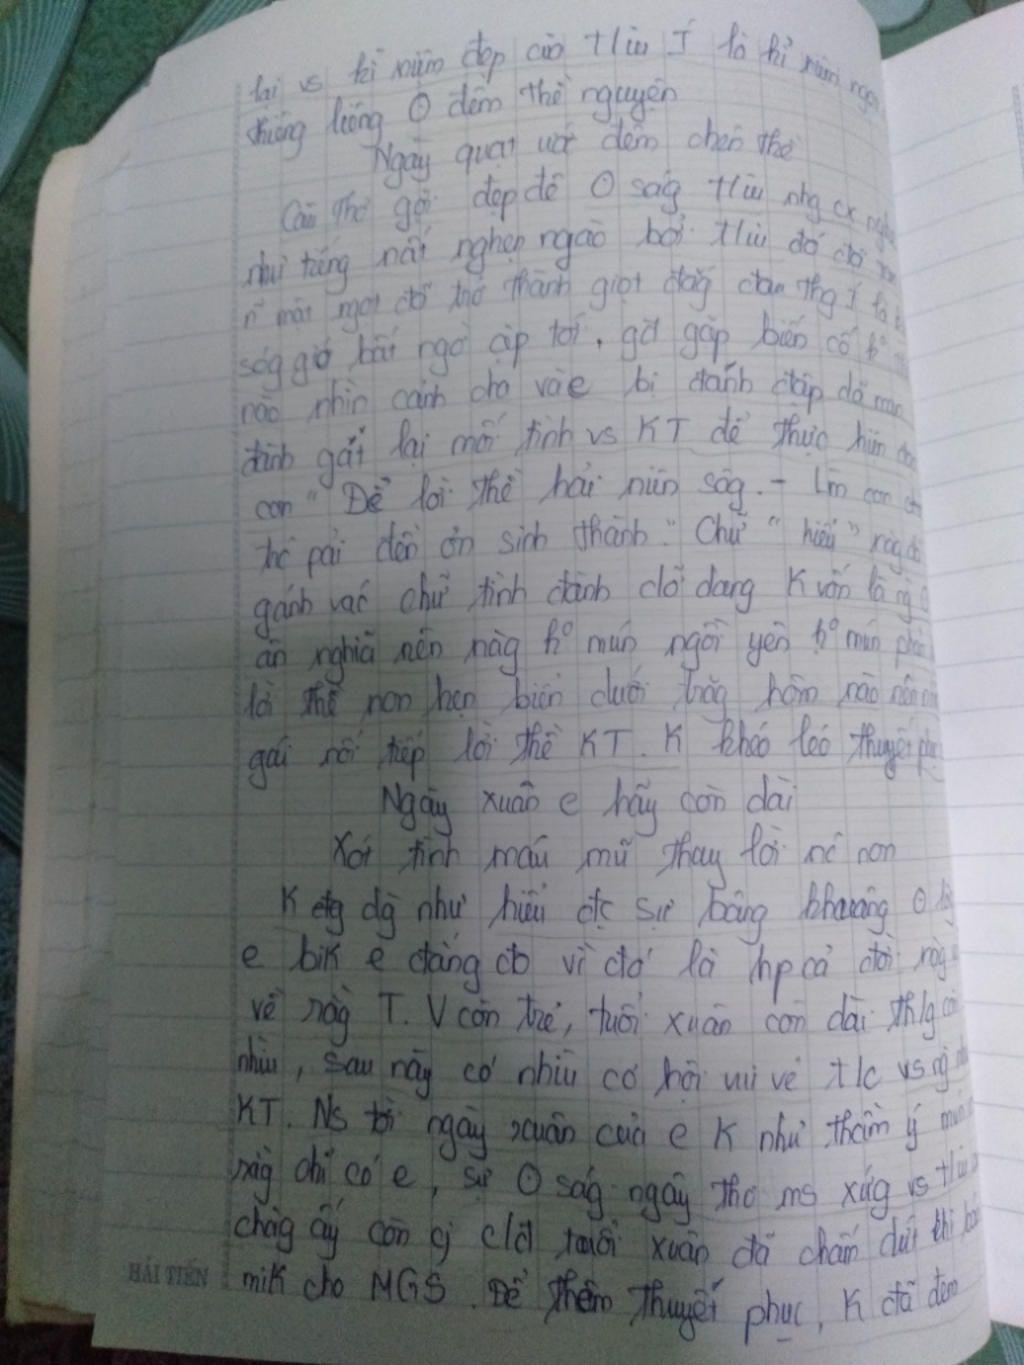 lại vs kỉ niệm đẹp của t/iu Í là kỉ niệm
thiêng liêng Ꙩ đêm thề nguyện
Ngày quạt ước đêm chén thề
Câu thơ gợi đẹp đẽ Ꙩ ság t/iu nhg cx
như tiếng nất nghẹn ngào bởi t/iu đó đã
mật ngọt đã trở thành giọt đắg đan thg Í là
sóg gió bất ngờ ập tới, gđ gặp biến cố k°
nào nhìn cảnh cha và e bị đánh đập dã man
đành gát lại mối tình vs KT để thực hiện
con " Để lời thề hải niên sôg. - Lm con
hé pải đền ơn sinh thành." Chữ " hiếu "
gánh vác chữ tình đành dở dang K vốn là ng
ân nghĩa nên nàg k° mún ngồi yên k° mún
lời thề non hẹn biển dưới trăg hôm nào nên
gái nối tiếp lời thề KT. K khéo léo thuyết phục
Ngày xuân e hãy còn dài
Xót tình máu mũ thay lời nc non
K đg dg như hiểu đc sự bâng khuâng Ꙩ
e bik e đắng đo vì đó là hp cả đời
về nàg T. V còn trẻ, tuổi xuân còn dài th/g
nhìu, sau này có nhìu cơ hội vui vẻ t/c vs
KT. Ns tới ngày xuân của e K như thầm ý
rằg chỉ có e, sự Ꙩ ság ngây thơ ms xứg vs t/iu
chàg ấy còn c/đ tuổi xuân đã chấm dứt khi bán
mik cho MGS. Để thêm thuyết phục, K đã đêm
HẢI TIẾN